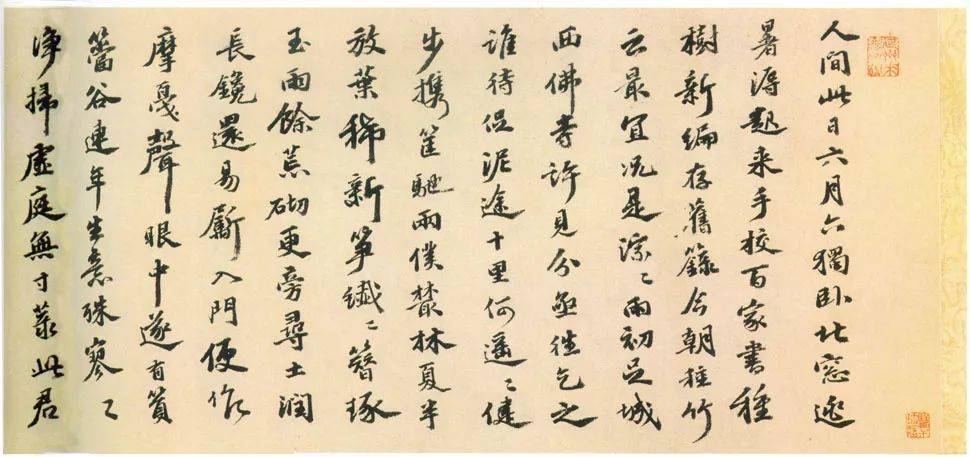 人間此日六月六獨卧北窓逃
暑溽起來手校百家書種
樹新編存舊籙今朝種竹
云最宜况是深〻雨初足城
西佛寺許見分亟往乞之
誰待促泥途十里何遥〻健
步携筐馳兩僕叢林夏半
放葉稀新笋纖〻簪琢
玉雨餘荒砌更旁尋土潤
長鑱還易斸入門便作
摩戛聲眼中遂有篔
簹谷連年生意殊寥〻
淨掃虛庭無寸菉此君